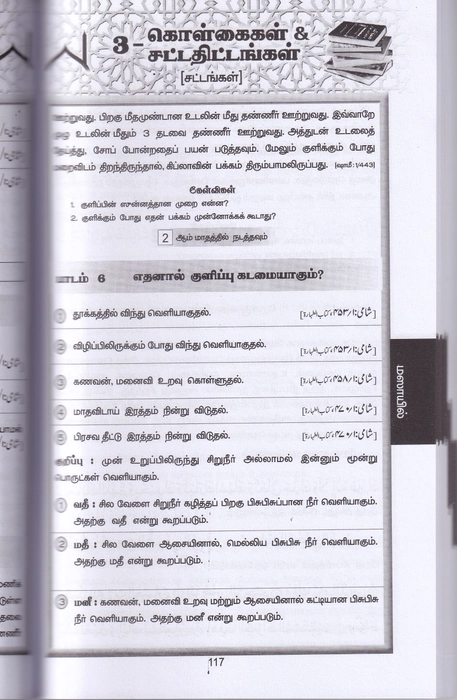 3 – கொள்கைகள் &
சட்டதிட்டங்கள்
[சட்டங்கள்]
ஊற்றுவது. பிறகு மீதமுண்டான உடலின் மீது தண்ணீர் ஊற்றுவது. இவ்வாறே
முழு உடலின் மீதும் 3 தடவை தண்ணீர் ஊற்றுவது. அத்துடன் உடலைத்
தேய்த்து, சோப் போன்றதைப் பயன் படுத்தவும். மேலும் குளிக்கும் போது
மறைவிடம் திறந்திருந்தால், கிப்லாவின் பக்கம் திரும்பாமலிருப்பது. (ஷாமீ: 1/443)
கேள்விகள்
1. குளிப்பின் ஸுன்னத்தான முறை என்ன?
2. குளிக்கும் போது எதன் பக்கம் முன்னோக்கக் கூடாது?
2 ஆம் மாதத்தில் நடத்தவும்
பாடம் 6 எதனால் குளிப்பு கடமையாகும்?
1 தூக்கத்தில் விந்து வெளியாகுதல். [شامی:۱/۴۵۳، کتاب الطہارۃ]
2 விழிப்பிலிருக்கும் போது விந்து வெளியாகுதல். [شامی:۱/۴۵۳، کتاب الطہارۃ]
3 கணவன், மனைவி உறவு கொள்ளுதல். [شامی:۱/۴۵۸، کتاب الطہارۃ]
4 மாதவிடாய் இரத்தம் நின்று விடுதல். [شامی:۱/۴۷۰، کتاب الطہارۃ]
5 பிரசவ தீட்டு இரத்தம் நின்று விடுதல். [شامی:۱/۴۷۰، کتاب الطہارۃ]
குறிப்பு : முன் உறுப்பிலிருந்து சிறுநீர் அல்லாமல் இன்னும் மூன்று
பொருட்கள் வெளியாகும்.
1 வதீ : சில வேளை சிறுநீர் கழித்தப் பிறகு பிசுபிசுப்பான நீர் வெளியாகும்.
அதற்கு வதீ என்று கூறப்படும்.
2 மதீ : சில வேளை ஆசையினால், மெல்லிய பிசுபிசு நீர் வெளியாகும்.
அதற்கு மதீ என்று கூறப்படும்.
3 மனீ : கணவன், மனைவி உறவு மற்றும் ஆசையினால் கட்டியான பிசுபிசு
நீர் வெளியாகும். அதற்கு மனீ என்று கூறப்படும்.
117